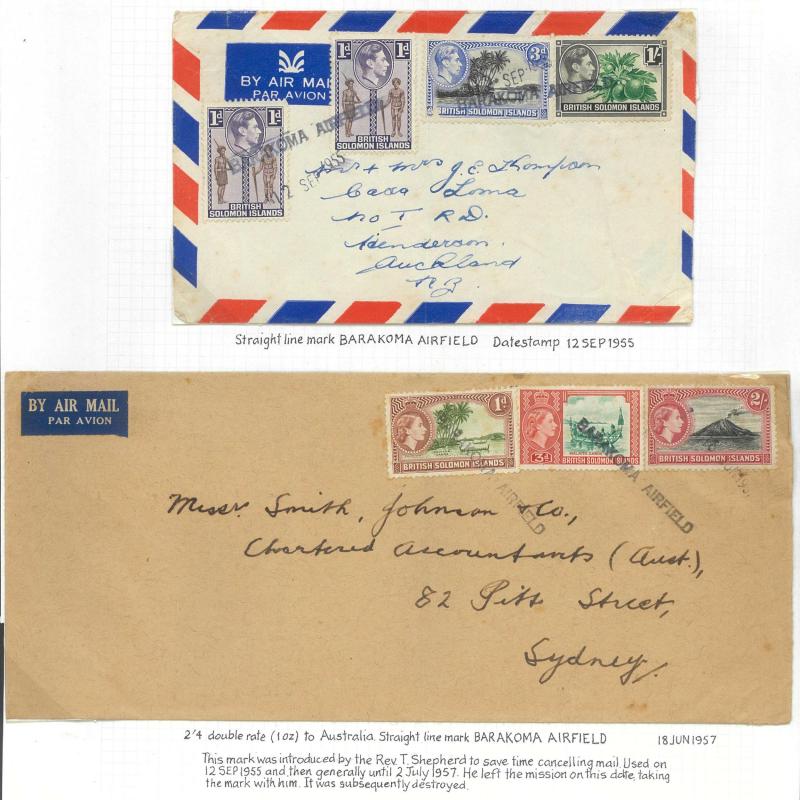 BY AIR MAIL
PAR AVION
1d 1d
BRITISH
SOLOMON ISLANDS
3d
BRITISH SOLOMON ISLANDS
1/-
BRITISH SOLOMON ISLANDS
SEP
BARAKOMA AIRFIELD
1d 1d
BRITISH
SOLOMON ISLANDS
BARAKOMA AIRFIELD
12 SEP 1955
Mr + Mrs J. E. Thompson
Casa Loma
No 1 R.D.
Henderson.
Auckland
N.Z.
Straight line mark BARAKOMA AIRFIELD Datestamp 12 SEP 1955
BY AIR MAIL
PAR AVION
1d
BRITISH SOLOMON ISLANDS
3d
BRITISH SOLOMON ISLANDS
2/-
BRITISH SOLOMON ISLANDS
AIRFIELD
BARAKOMA AIRFIELD
1957
Messr. Smith, Johnson & Co.,
Chartered Accountants (Aust.),
82 Pitt Street,
Sydney.
2'4 double rate (1 oz) to Australia. Straight line mark BARAKOMA AIRFIELD 18 JUN 1957
This mark was introduced by the Rev. T. Shepherd to save time cancelling mail. Used on
12 SEP 1955 and then generally until 2 July 1957. He left the mission on this date, taking
the mark with him. It was subsequently destroyed.